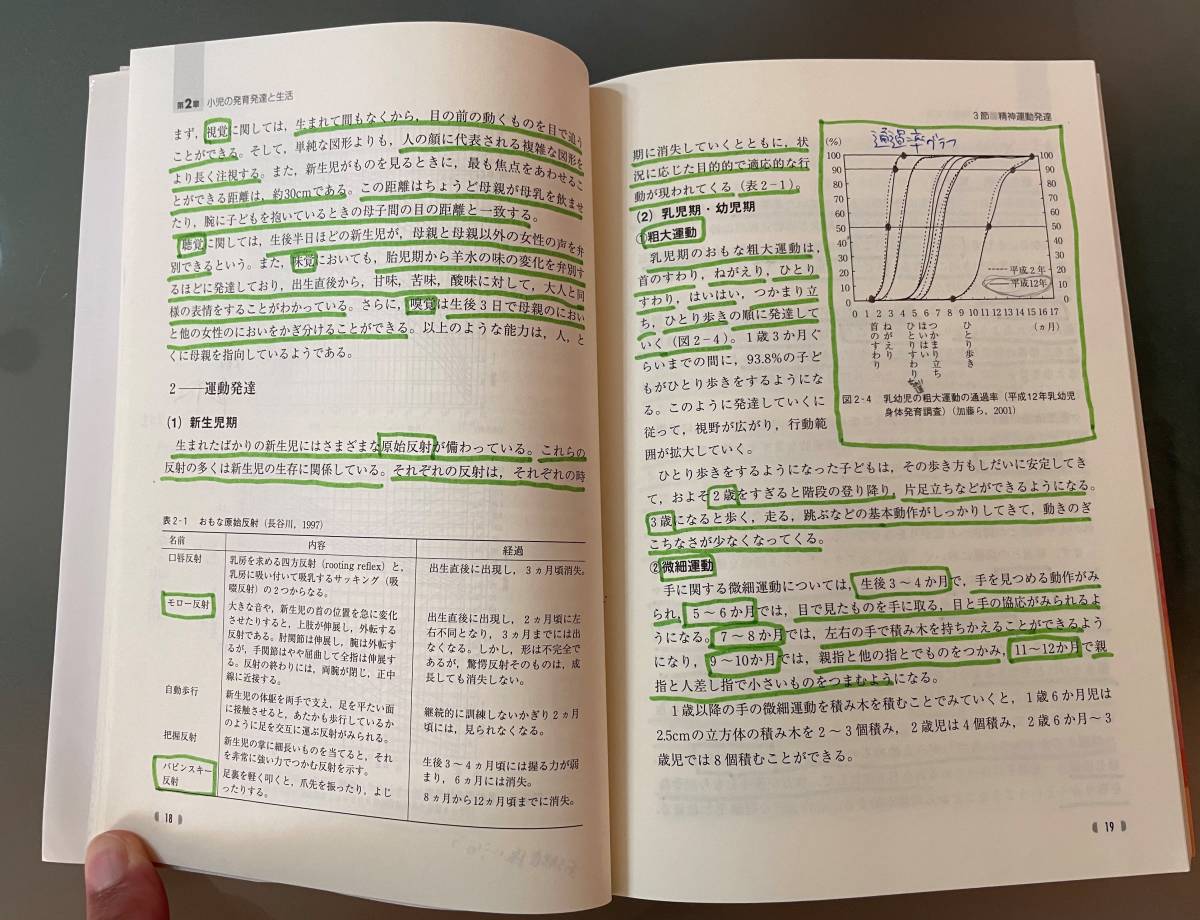 第2章 小児の発育発達と生活
まず，視覚に関しては，生まれて間もなくから，目の前の動くものを目で追う
ことができる。そして，単純な図形よりも，人の顔に代表される複雑な図形を
より長く注視する。また，新生児がものを見るときに，最も焦点をあわせるこ
とができる距離は，約30cmである。この距離はちょうど母親が母乳を飲ませ
たり，腕に子どもを抱いているときの母子間の目の距離と一致する。
聴覚に関しては，生後半日ほどの新生児が，母親と母親以外の女性の声を弁
別できるという。また，味覚においても，胎児期から羊水の味の変化を弁別す
るほどに発達しており，出生直後から，甘味，苦味，酸味に対して，大人と同
様の表情をすることがわかっている。さらに，嗅覚は生後3日で母親のにおい
と他の女性のにおいをかぎ分けることができる。以上のような能力は，人，と
くに母親を指向しているようである。
2──運動発達
(1) 新生児期
生まれたばかりの新生児にはさまざまな原始反射が備わっている。これらの
反射の多くは新生児の生存に関係している。それぞれの反射は，それぞれの時
表2-1 おもな原始反射（長谷川，1997）
名前 内容 経過
口唇反射 乳房を求める四方反射（rooting reflex）と， 出生直後に出現し，3ヵ月頃消失。
乳房に吸い付いて吸乳するサッキング（吸
啜反射）の2つからなる。
モロー反射 大きな音や，新生児の首の位置を急に変化 出生直後に出現し，2ヵ月頃に左
させたりすると，上肢が伸展し，外転する 右不同となり，3ヵ月までには出
反射である。肘関節は伸展し，腕は外転す なくなる。しかし，形は不完全で
るが，手関節はやや屈曲して全指は伸展す あるが，驚愕反射そのものは，成
る。反射の終わりには，両腕が閉じ，正中 長しても消失しない。
線に近接する。
自動歩行 新生児の体躯を両手で支え，足を平たい面 継続的に訓練しないかぎり2ヵ月
に接触させると，あたかも歩行しているか 頃には，見られなくなる。
のように足を交互に運ぶ反射がみられる。
把握反射 新生児の掌に細長いものを当てると，それ 生後3～4ヵ月頃には握る力が弱
を非常に強い力でつかむ反射を示す。 まり，6ヵ月には消失。
バビンスキー 足裏を軽く叩くと，爪先を振ったり，よじ 8ヵ月から12ヵ月頃までに消失。
反射 ったりする。
18
3節 精神運動発達
期に消失していくとともに，状
況に応じた目的的で適応的な行
動が現われてくる（表2-1）。
(2) 乳児期・幼児期
①粗大運動
乳児期のおもな粗大運動は，
首のすわり，ねがえり，ひとり
すわり，はいはい，つかまり立
ち，ひとり歩きの順に発達して
いく（図2-4）。1歳3か月ぐ
らいまでの間に，93.8%の子ど
もがひとり歩きをするようにな
る。このように発達していくに
従って，視野が広がり，行動範
囲が拡大していく。
通過率グラフ
(%)
100 100
90 90
80 80
70 70
60 60
50 50
40 40
30 30
20 20
10 10
0 0
平成2年
平成12年
0 1 2 3 4 5 6 7 8 9 10 11 12 13 14 15 16 17
（ヵ月）
首のすわり
ねがえり
ひとりすわり
はいはい
つかまり立ち
ひとり歩き
図2-4 乳幼児の粗大運動の通過率（平成12年乳幼児
身体発育調査）（加藤ら，2001）
ひとり歩きをするようになった子どもは，その歩き方もしだいに安定してき
て，およそ2歳をすぎると階段の登り降り，片足立ちなどができるようになる。
3歳になると歩く，走る，跳ぶなどの基本動作がしっかりしてきて，動きのぎ
こちなさが少なくなってくる。
②微細運動
手に関する微細運動については，生後3～4か月で，手を見つめる動作がみ
られ，5～6か月では，目で見たものを手に取る，目と手の協応がみられるよ
うになる。7～8か月では，左右の手で積み木を持ちかえることができるよう
になり，9～10か月では，親指と他の指とでものをつかみ，11～12か月で親
指と人差し指で小さいものをつまむようになる。
1歳以降の手の微細運動を積み木を積むことでみていくと，1歳6か月児は
2.5cmの立方体の積み木を2～3個積み，2歳児は4個積み，2歳6か月～3
歳児では8個積むことができる。
19